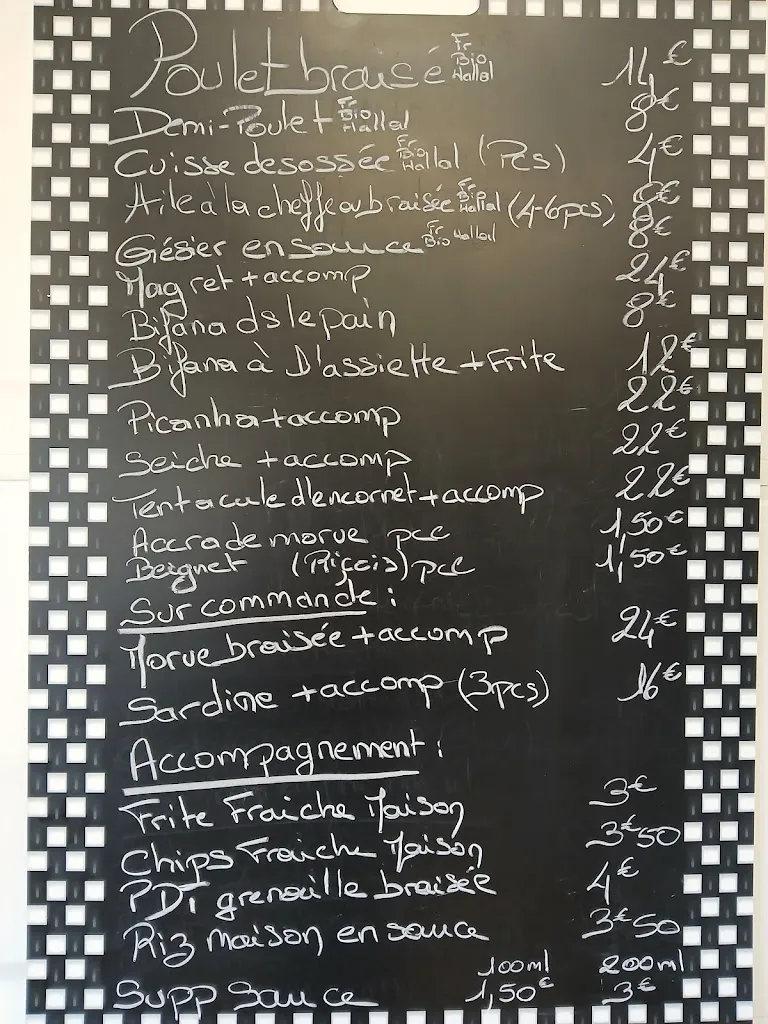 Poulet braisé Fr Bio Hallal 14€
Demi-Poulet Fr Bio Hallal 8€
Cuisse desossée Fr Bio Hallal (Pcs) 4€
Aile à la cheffe ou braisée Fr Bio Hallal (4-6pcs) 8€
Gésier en sauce Fr Bio Hallal 8€
Magret + accomp 24€
Bifana ds le pain 8€
Bifana à D'assiette + Frite 12€
Picanha + accomp 22€
Seiche + accomp 22€
Tentacule d'encornet + accomp 22€
Accra de morue pce 1,50€
Beignet (Riçois) pce 1,50€
Sur commande :
Morue braisée + accomp 24€
Sardine + accomp (3pcs) 16€
Accompagnement :
Frite Fraiche Maison 3€
Chips Fraiche Maison 3€50
PDT grenouille braisée 4€
Riz maison en sauce 3€50
100ml 200ml
Supp Sauce 1,50€ 3€